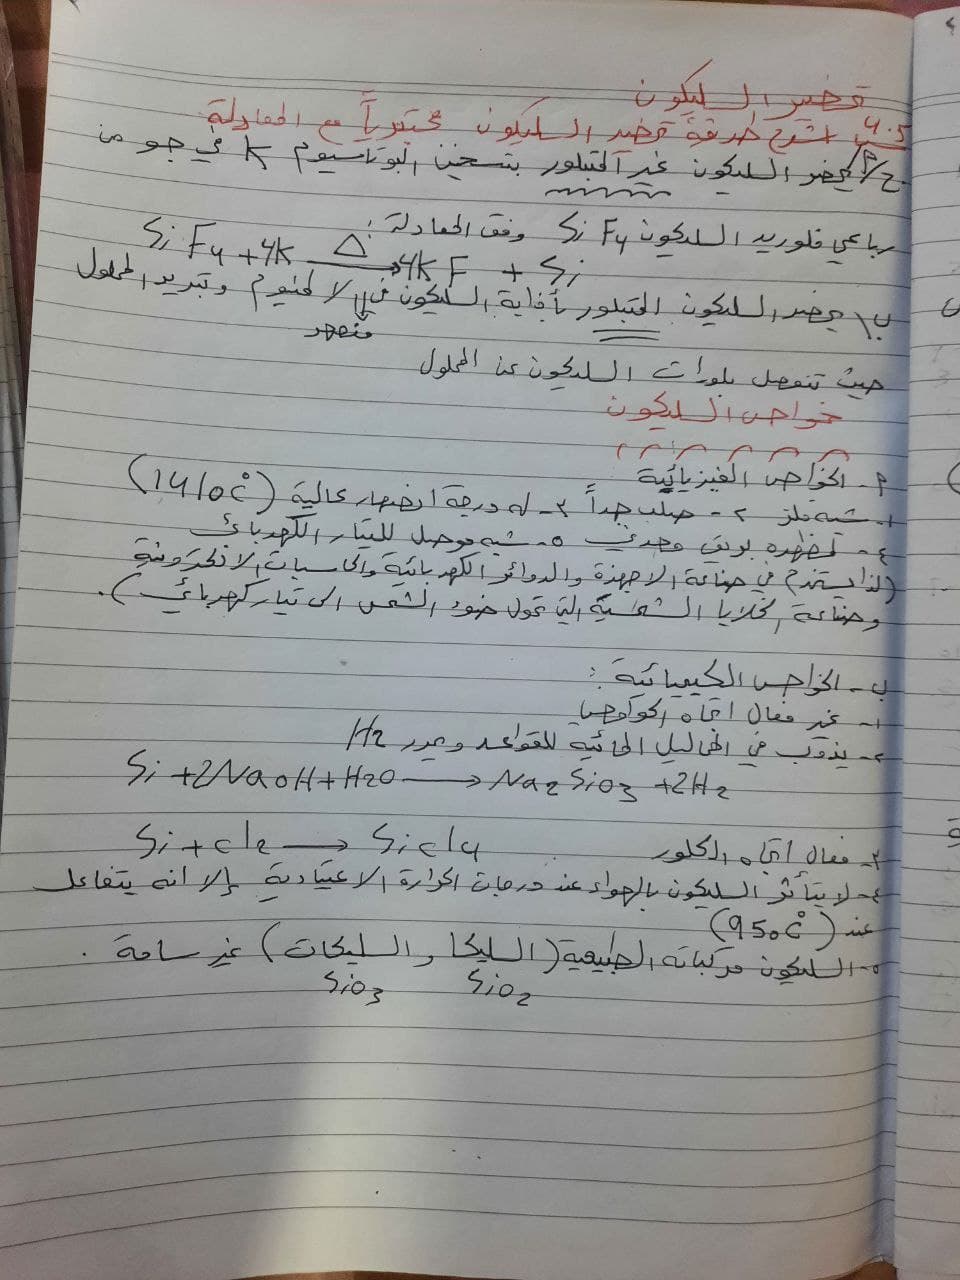 تحضير السليكون
س/ اشرح طريقة تحضير السليكون مختبرياً مع المعادلة
ج/ أ/ يحضر السليكون غير المتبلور بتسخين البوتاسيوم K في جو من
رباعي فلوريد السليكون SiF4 وفق المعادلة:
SiF4 + 4K —Δ→ 4KF + Si
ب/ يحضر السليكون المتبلور بأذابة السليكون في الالمنيوم وتبريد المحلول
منصهر
حيث تنفصل بلورات السليكون عن المحلول
خواص السليكون
أ- الخواص الفيزيائية
١- شبه فلز ٢- صلب جداً ٣- له درجة انصهار عالية (1410C°)
٤- لمظهره بريق معدني ٥- شبه موصل للتيار الكهربائي
(لذا يستخدم في صناعة الاجهزة والدوائر الكهربائية والحاسبات الالكترونية
وصناعة الخلايا الشمسية التي تحول ضوء الشمس الى تيار كهربائي).
ب- الخواص الكيميائية:
١- غير فعال اتجاه الحوامض
٢- يذوب في المحاليل المائية للقواعد ويحرر H2
Si + 2NaOH + H2O → Na2SiO3 + 2H2
٣- فعال اتجاه الكلور Si + cl2 → Sicl4
٤- لا يتأثر السليكون بالهواء عند درجات الحرارة الاعتيادية إلا انه يتفاعل
عند (950C°)
٥- السليكون مركباته الطبيعية (السليكا والسليكات) غير سامة.
SiO2 SiO3